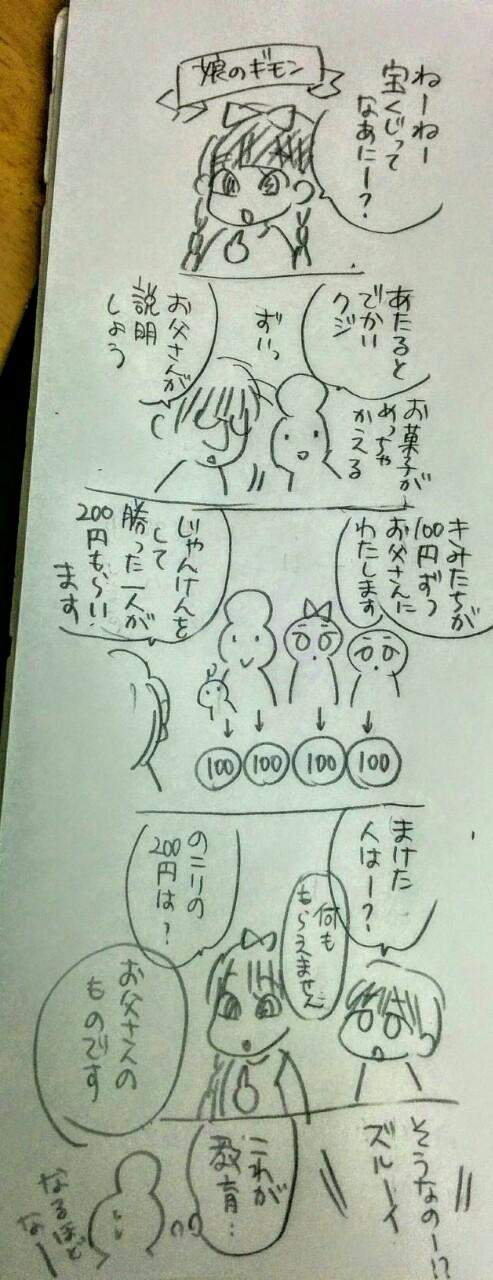 娘のギモン
ねーねー
宝くじって
なあにー？
あたると
でかい
クジ
お菓子が
めっちゃ
かえる
ずいっ
お父さんが
説明
しよう
きみたちが
100円ずつ
お父さんに
わたします
じゃんけんを
して
勝った一人が
200円もらい
ます
100
100
100
100
まけた
人はー？
何も
もらえません
のこりの
200円は？
お父さんの
ものです
そうなのー!?
ズルーイ
これが
教育…
なるほど
なー